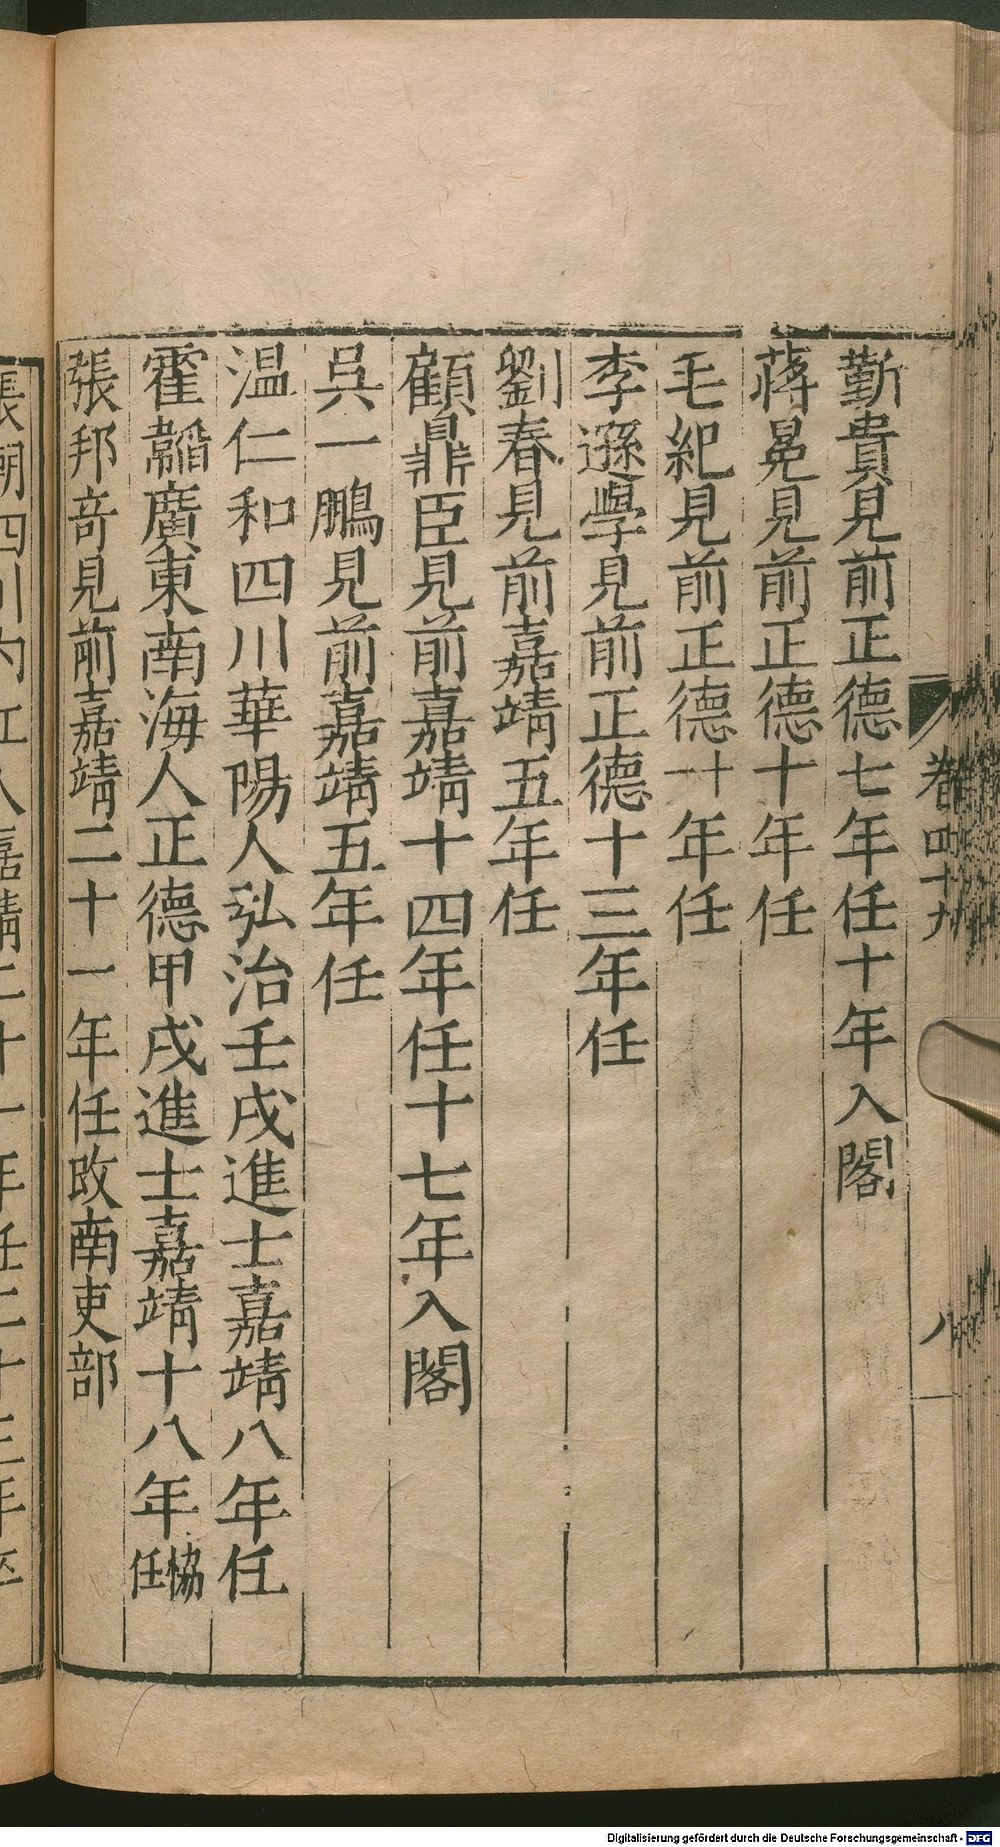 卷四十九
八
靳貴見前正德七年任十年入閣
蔣冕見前正德十年任
毛紀見前正德十一年任
李遜學見前正德十三年任
劉春見前嘉靖五年任
顧鼎臣見前嘉靖十四年任十七年入閣
吳一鵬見前嘉靖五年任
温仁和四川華陽人弘治壬戌進士嘉靖八年任
霍韜廣東南海人正德甲戌進士嘉靖十八年協任
張邦奇見前嘉靖二十一年任改南吏部
張潮四川內江人嘉靖二十一年任二十三年卒
Digitalisierung gefördert durch die Deutsche Forschungsgemeinschaft - DFG